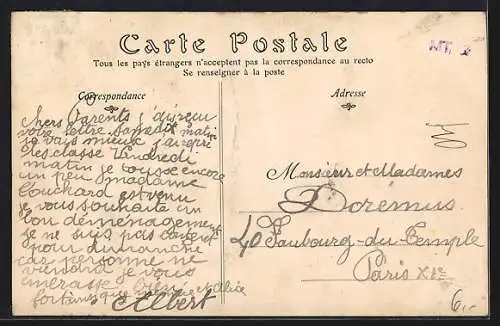 Carte Postale
Tous les pays étrangers n'acceptent pas la correspondance au recto
Se renseigner à la poste
Correspondance
Adresse
Chers Parents j'ai reçu
votre lettre samedi matin
je vais mieux j'ai repri
les classe Vendredi
matin je tousse encore
un peu madame
Couchard est venu
je vous souhaite un
bon déménagement
je ne suis pas
pour dimanche
car personne ne
viendra je vous
embrasse bien
fort ainsi que
Albert
Monsieur et Madames
Dorémus
40 Faubourg-du-Temple
Paris XIe
6,-